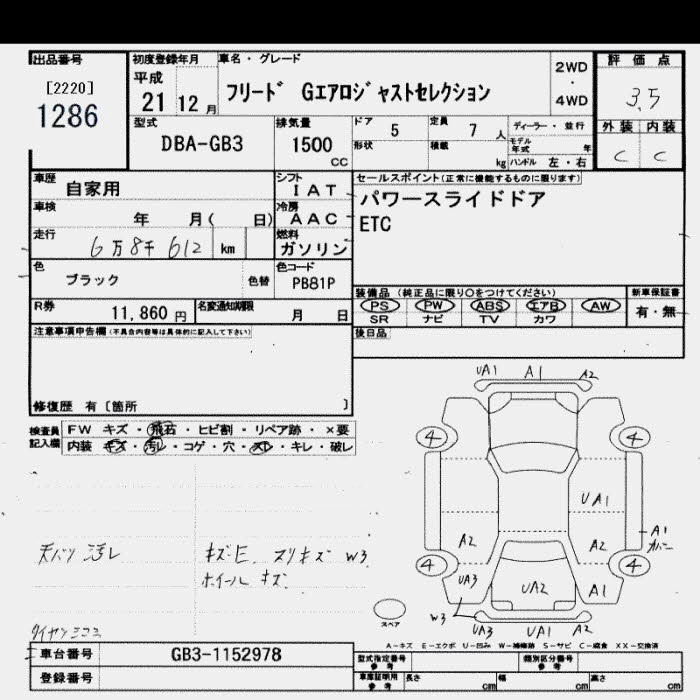 出品番号 初度登録年月 車名・グレード 2WD 評価点
[2220] 平成 ・
1286 21 12月 フリード Gエアロジャストセレクション 4WD 3.5
型式 排気量 ドア 5 定員 7人 ディーラー・並行 外装 内装
DBA-GB3 1500 形状 積載 モデル年式 年 C C
CC kg ハンドル 左・右
車歴 自家用 シフト IAT セールスポイント(正常に機能するものに限ります)
車検 年 月( 日) 冷房 AAC パワースライドドア
走行 6万8千612 km 燃料 ガソリン ETC
色 ブラック 色替 色コード PB81P
装備品 (純正品に限り○をつけてください) 新車保証書
R券 11,860円 名変通知期限 月 日 PS PW ABS エアB AW 有・無
SR ナビ TV カワ
注意事項申告欄(不具合内容等は具体的に記入して下さい) 後日品
修復歴 有〔箇所 〕
UA1 A1 A2
検査員記入欄 FW キズ・飛石・ヒビ割・リペア跡・×要
内装 キズ・汚レ・コゲ・穴・スレ・キレ・破レ
4 4
UA1
A2 A2 A1
4 4
UA3 UA2 A1
天バリ 汚レ キズ・E. スリキズ W3
ホイール キズ
スペア W3 UA3 UA1 A2
A-キズ E-エクボ U-凹み W-補修跡 S-サビ C-腐食 XX-交換済
車台番号 GB3-1152978 型式指定番号 参考 類別区分番号 参考
登録番号 車庫証明用 参考 長さ cm 幅 cm 高さ cm